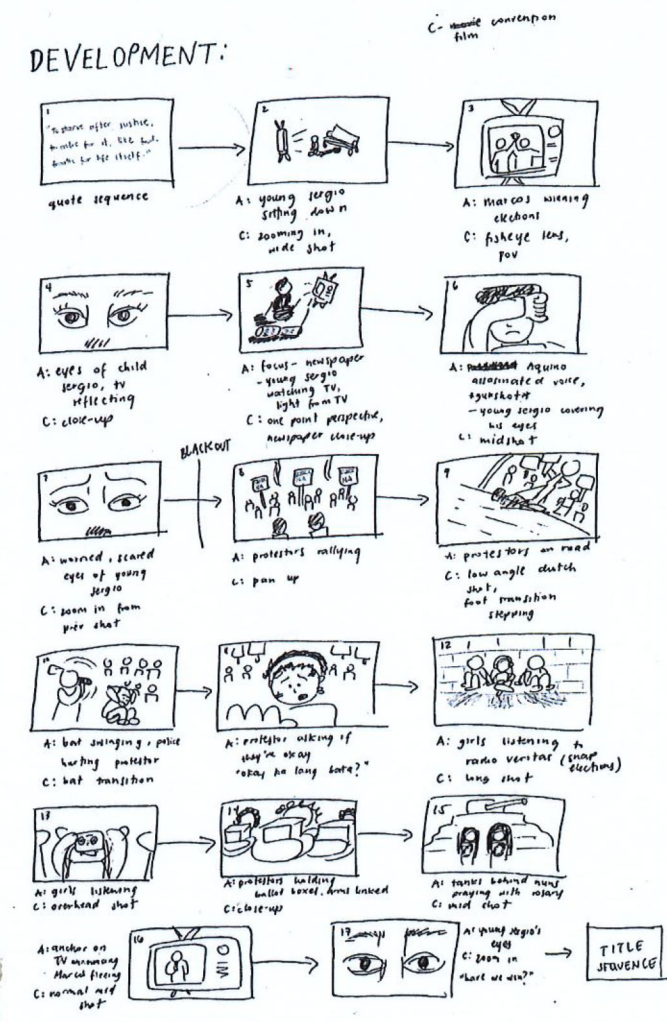 C- movie convention
film
DEVELOPMENT:
1
"To starve after justice,
to
quote sequence
2
A: young sergio
sitting down
C: zooming in,
wide shot
3
A: marcos winning
elections
C: fisheye lens,
pov
4
A: eyes of child
sergio, tv
reflecting
C: close-up
5
A: focus - newspaper
- young sergio
watching TV,
light from TV
C: one point perspective,
newspaper close-up
6
A: Aquino
assasinated voice,
+gunshots
- young sergio covering
his eyes
C: midshot
7
A: worried, scared
eyes of young
sergio
C: zoom in from
prev shot
BLACKOUT
8
A: protestors rallying
C: pan up
9
A: protestors on road
C: low angle dutch
shot,
foot transition
stepping
10
A: bat swinging, police
hurting protestor
C: bat transition
11
A: protestor asking if
they're okay
"okay ka lang bata?"
12
A: girls listening to
radio veritas (snap
elections)
C: long shot
13
A: girls listening
C: overhead shot
14
A: protestors holding
ballot boxes, arms linked
C: close-up
15
A: tanks behind nuns
praying with rosary
C: mid shot
16
A: anchor on
TV announcing
Marcos fleeing
C: normal mid
shot
17
A: young sergio's
eyes
C: zoom in
"have we win?"
TITLE
SEQUENCE